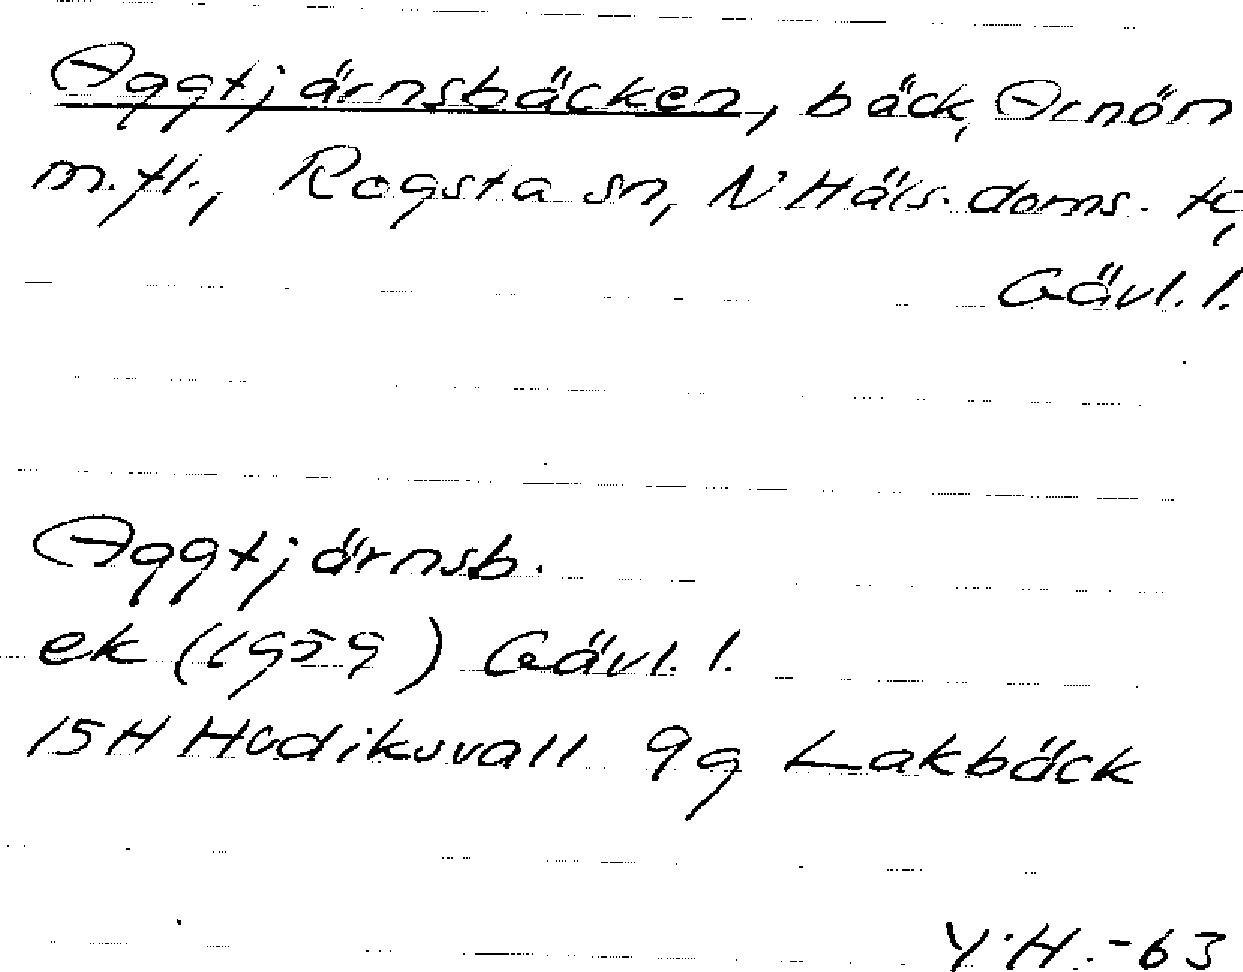 Aggtjärnsbäcken, bäck, Arnön
m.fl., Rogsta sn, N Häls. doms. tg,
Gävl. l.
Aggtjärnsb.
ek (1959) Gävl. l.
15H Hudiksvall 9g Lakbäck
Y.H.-63